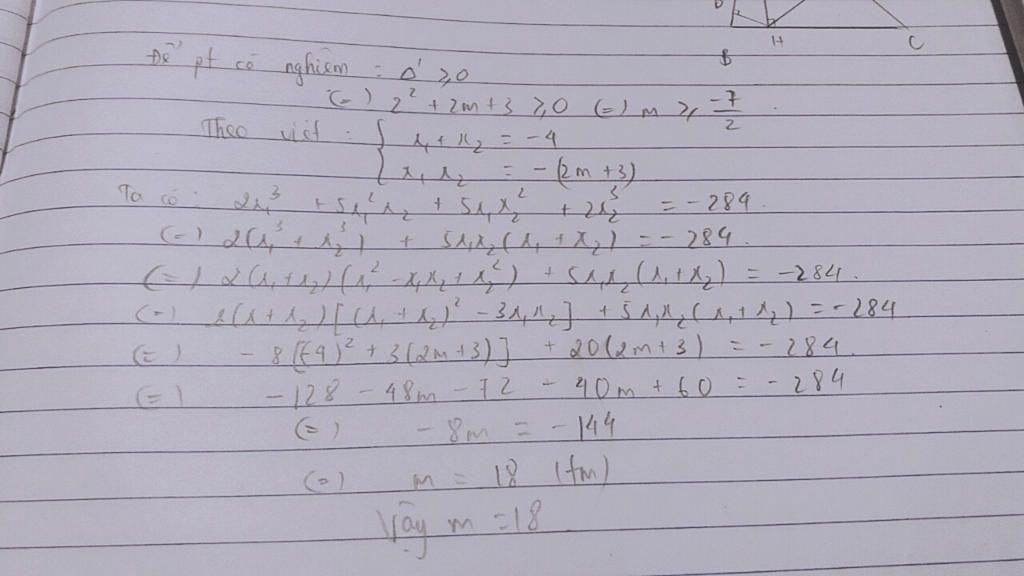 B H C
Để pt có nghiệm : Δ' ≥ 0
(=) 2² + 2m + 3 ≥ 0 (=) m ≥ -7/2 .
Theo viét : { x₁ + x₂ = -4
x₁ x₂ = -(2m+3)
Ta có : 2x₁³ + 5x₁²x₂ + 5x₁x₂² + 2x₂³ = -284.
(=) 2(x₁³ + x₂³) + 5x₁x₂(x₁ + x₂) = -284.
(=) 2(x₁+x₂)(x₁² - x₁x₂ + x₂²) + 5x₁x₂(x₁+x₂) = -284.
(=) 2(x+x₂)[(x₁+x₂)² - 3x₁x₂] + 5x₁x₂(x₁+x₂) = -284
(=) -8[(-4)² + 3(2m+3)] + 20(2m+3) = -284.
(=) -128 - 48m - 72 - 40m + 60 = -284
(=) -8m = -144
(=) m = 18 (tm)
Vậy m = 18